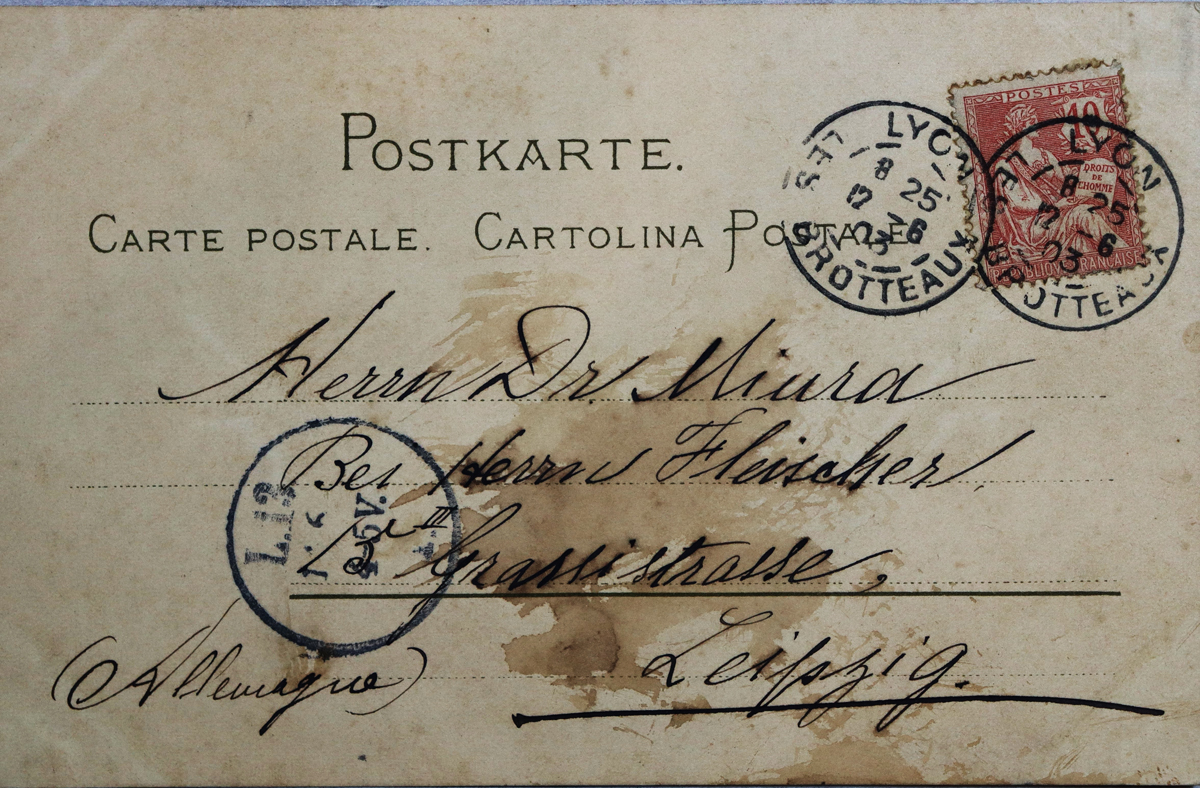 POSTKARTE.
CARTE POSTALE. CARTOLINA POSTALE.
POSTES
10
DROITS
DE
L'HOMME
REPUBLIQUE FRANÇAISE
LYON
LES BROTTEAUX
8 25
12 6
03
LYON
LES BROTTEAUX
8 25
12 6
03
Herrn Dr. Miura
Bei Herrn Fleischer,
III Grassistrasse,
Leipzig.
(Allemagne)
L.13
5V.